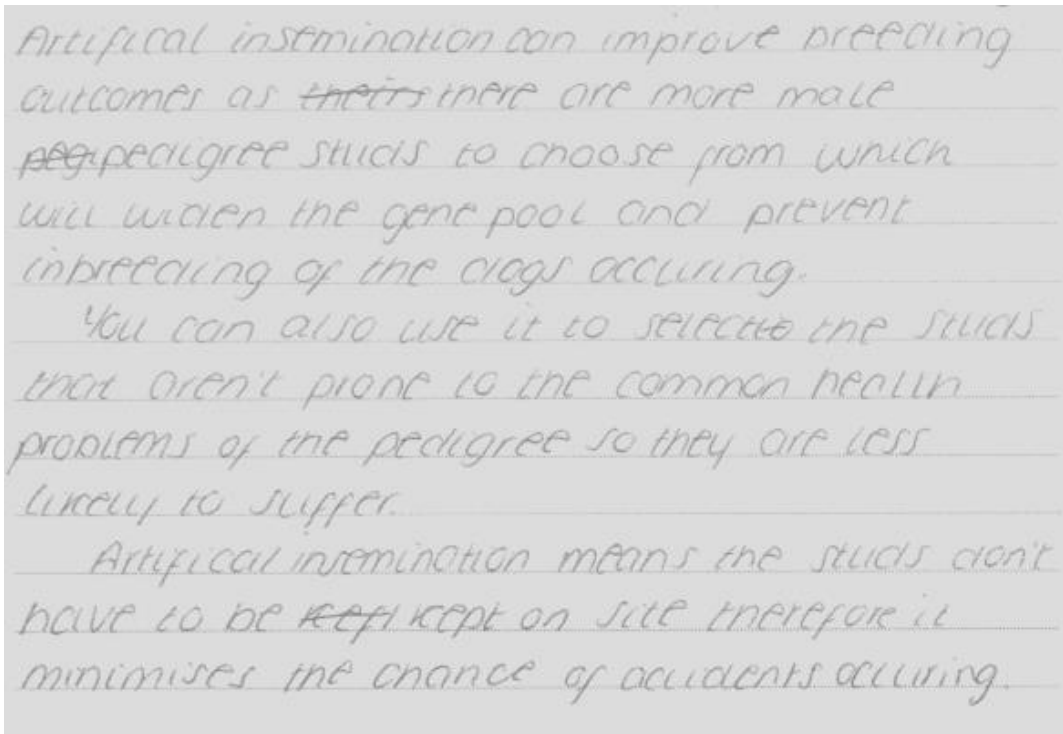 Artifical insemination can improve breeding
outcomes as theirs there are more male
peg pedigree studs to choose from which
will widen the gene pool and prevent
inbreeding of the dogs occuring.
You can also use it to select to the studs
that aren't prone to the common health
problems of the pedigree so they are less
likely to suffer.
Artifical insemination means the studs don't
have to be kept kept on site therefore it
minimises the chance of accidents occuring.